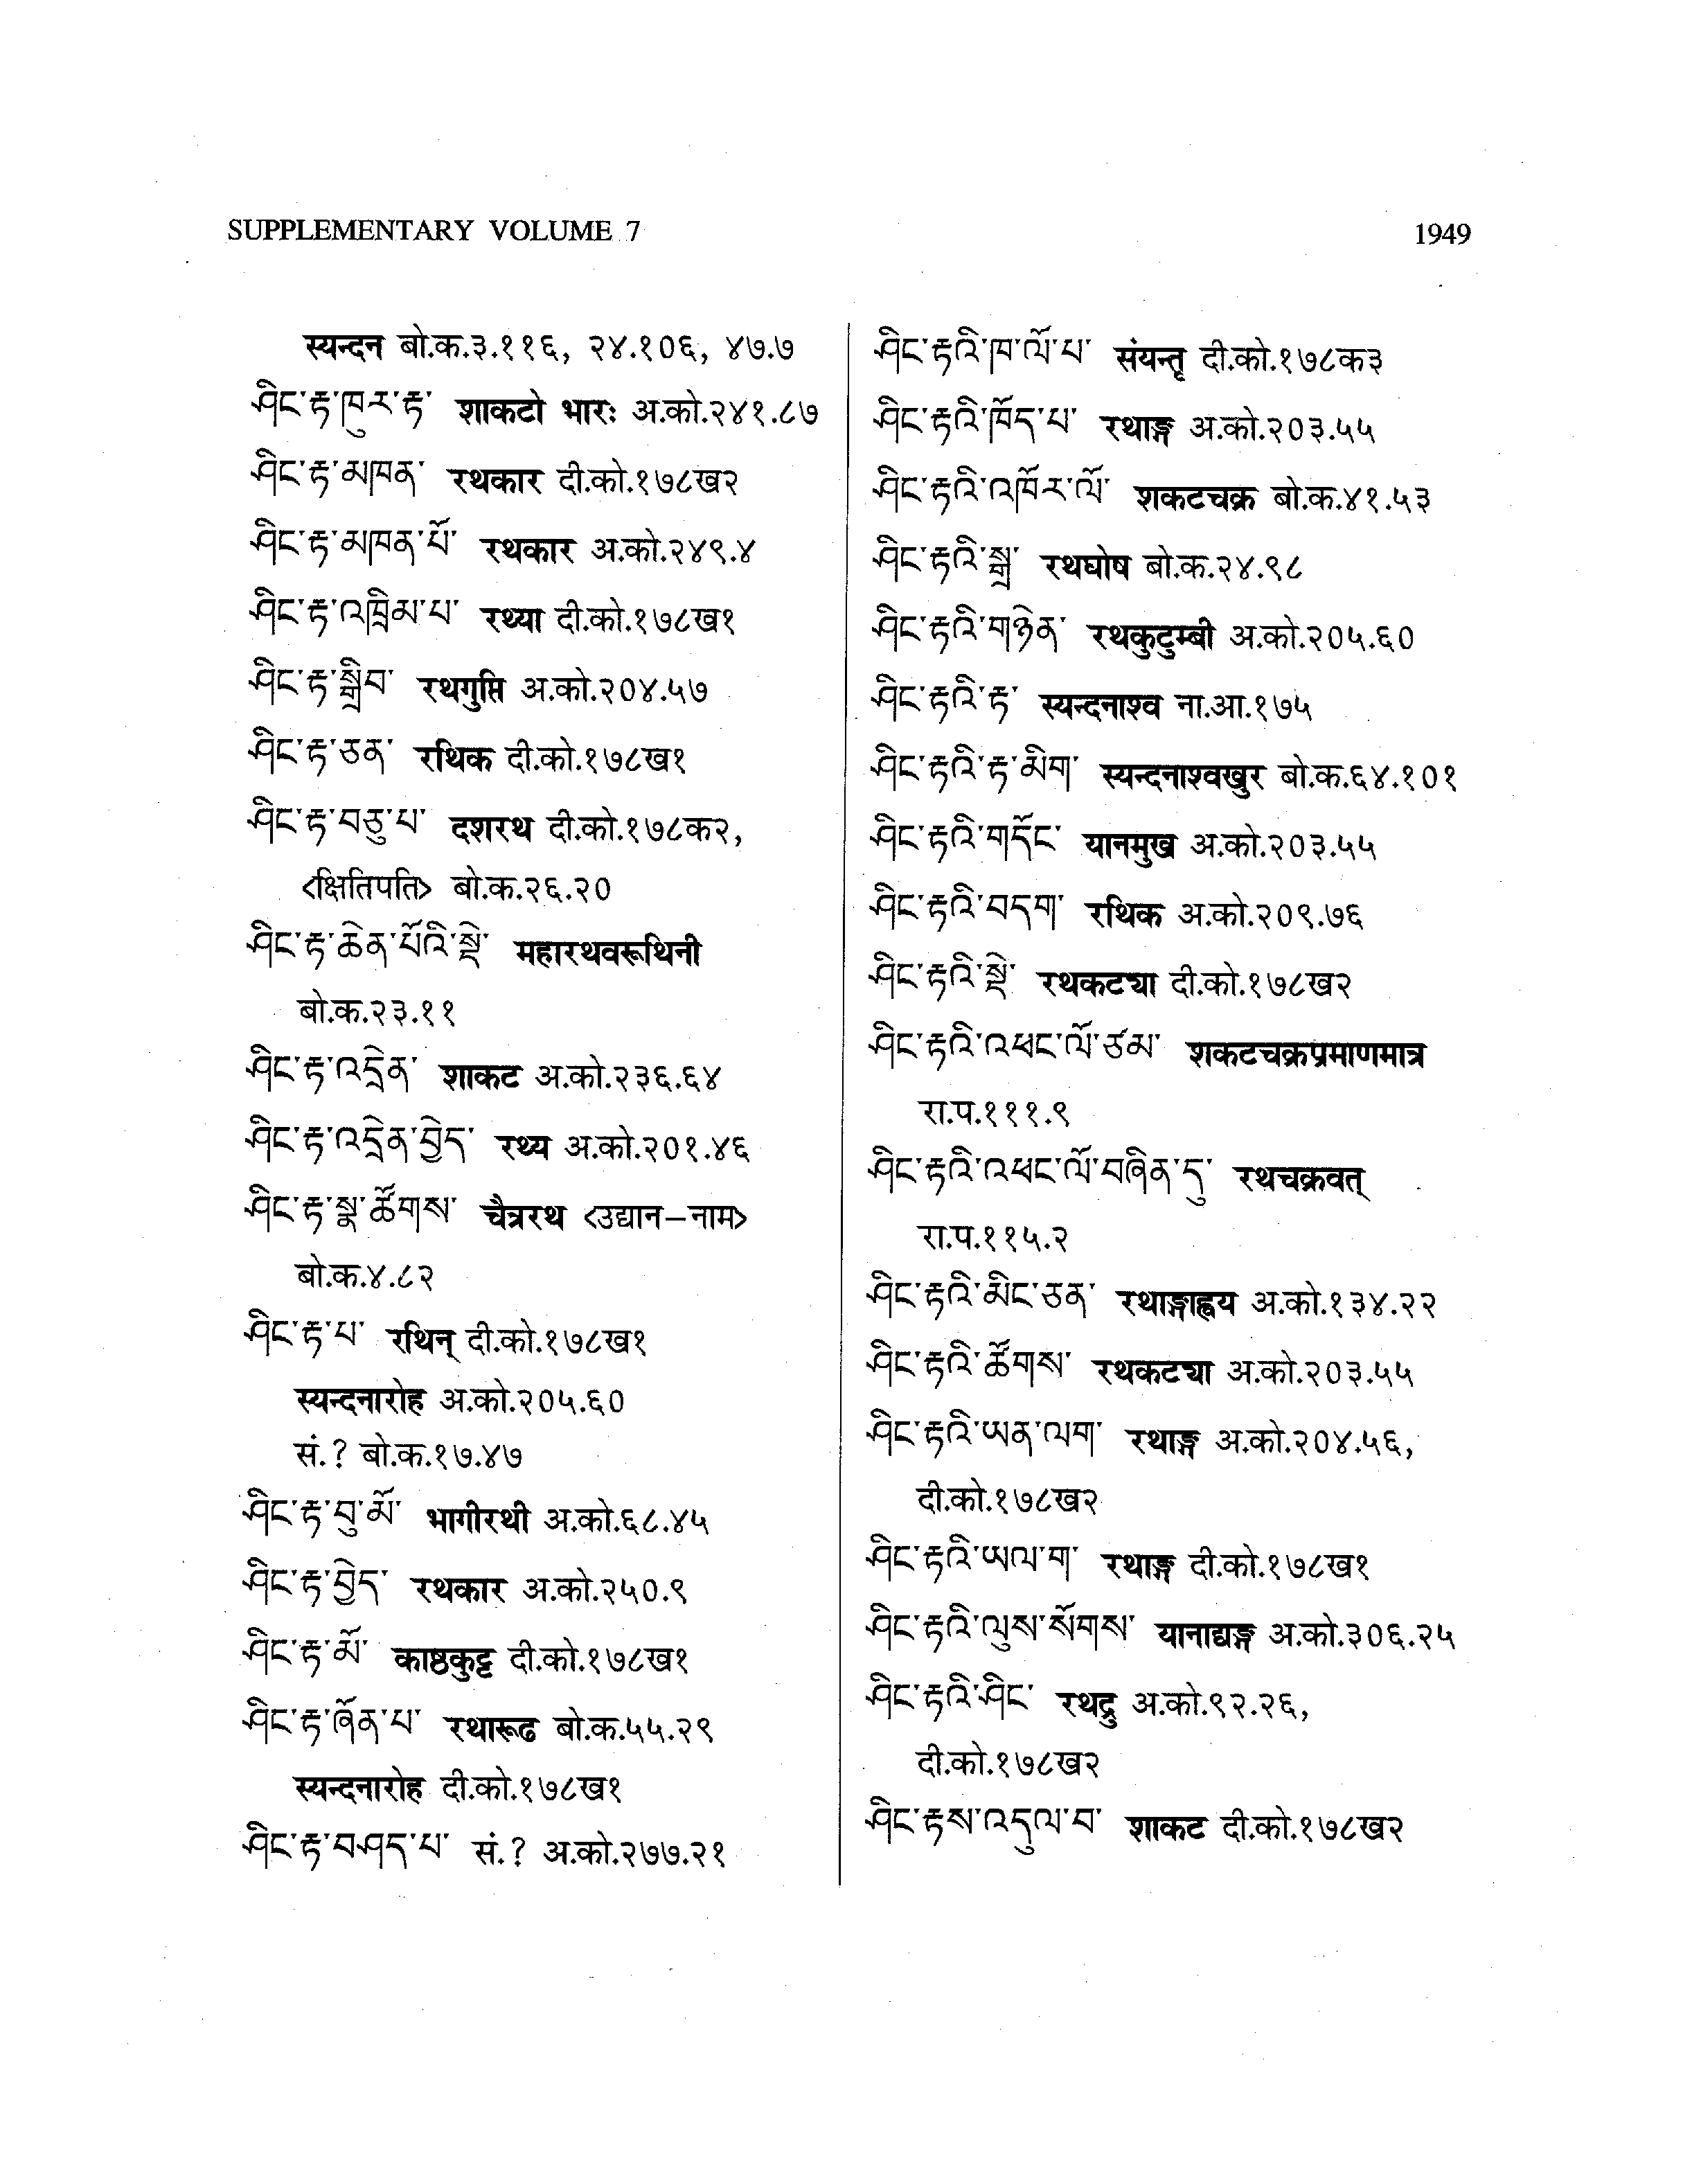 SUPPLEMENTARY VOLUME 7
1949
स्यन्दन बो.क.३.११६, २४.१०६, ४७.७
ཤིང་རྟ་ཁུར་རྟ་ शाकटो भारः अ.को.२४१.८७
ཤིང་རྟ་མཁན་ रथकार दी.को.१७८ख२
ཤིང་རྟ་མཁན་པོ་ रथकार अ.को.२४९.४
ཤིང་རྟ་འཁྲིམ་པ་ रथ्या दी.को.१७८ख१
ཤིང་རྟ་སྒྲིབ་ रथगुप्ति अ.को.२०४.५७
ཤིང་རྟ་ཅན་ रथिक दी.को.१७८ख१
ཤིང་རྟ་བཅུ་པ་ दशरथ दी.को.१७८क२,
<क्षितिपति> बो.क.२६.२०
ཤིང་རྟ་ཆེན་པོའི་སྡེ་ महारथवरूथिनी
बो.क.२३.११
ཤིང་རྟ་འདྲེན་ शाकट अ.को.२३६.६४
ཤིང་རྟ་འདྲེན་བྱེད་ रथ्य अ.को.२०१.४६
ཤིང་རྟ་སྣ་ཚོགས་ चैत्ररथ <उद्यान-नाम>
बो.क.४.८२
ཤིང་རྟ་པ་ रथिन् दी.को.१७८ख१
स्यन्दनारोह अ.को.२०५.६०
सं.? बो.क.१७.४७
ཤིང་རྟ་བུ་མོ་ भागीरथी अ.को.६८.४५
ཤིང་རྟ་བྱེད་ रथकार अ.को.२५०.९
ཤིང་རྟ་མོ་ काष्ठकुट्ट दी.को.१७८ख१
ཤིང་རྟ་ཞོན་པ་ रथारूढ बो.क.५५.२९
स्यन्दनारोह दी.को.१७८ख१
ཤིང་རྟ་བཤད་པ་ सं.? अ.को.२७७.२१
ཤིང་རྟའི་ཁ་ལོ་པ་ संयन्तृ दी.को.१७८क३
ཤིང་རྟའི་ཁོད་པ་ रथाङ्ग अ.को.२०३.५५
ཤིང་རྟའི་འཁོར་ལོ་ शकटचक्र बो.क.४१.५३
ཤིང་རྟའི་སྒྲ་ रथघोष बो.क.२४.९८
ཤིང་རྟའི་གཉེན་ रथकुटुम्बी अ.को.२०५.६०
ཤིང་རྟའི་རྟ་ स्यन्दनाश्व ना.आ.१७५
ཤིང་རྟའི་རྟ་མིག་ स्यन्दनाश्वखुर बो.क.६४.१०१
ཤིང་རྟའི་གདོང་ यानमुख अ.को.२०३.५५
ཤིང་རྟའི་བདག་ रथिक अ.को.२०९.७६
ཤིང་རྟའི་སྡེ་ रथकट्या दी.को.१७८ख२
ཤིང་རྟའི་འཕང་ལོ་ཙམ་ शकटचक्रप्रमाणमात्र
रा.प.१११.९
ཤིང་རྟའི་འཕང་ལོ་བཞིན་དུ་ रथचक्रवत्
रा.प.११५.२
ཤིང་རྟའི་མིང་ཅན་ रथाङ्गाह्वय अ.को.१३४.२२
ཤིང་རྟའི་ཚོགས་ रथकट्या अ.को.२०३.५५
ཤིང་རྟའི་ཡན་ལག་ रथाङ्ग अ.को.२०४.५६,
दी.को.१७८ख२
ཤིང་རྟའི་ཡལ་ག་ रथाङ्ग दी.को.१७८ख१
ཤིང་རྟའི་ལུས་སོགས་ यानाद्यङ्ग अ.को.३०६.२५
ཤིང་རྟའི་ཤིང་ रथद्रु अ.को.९२.२६,
दी.को.१७८ख२
ཤིང་རྟས་འདུལ་བ་ शाकट दी.को.१७८ख२